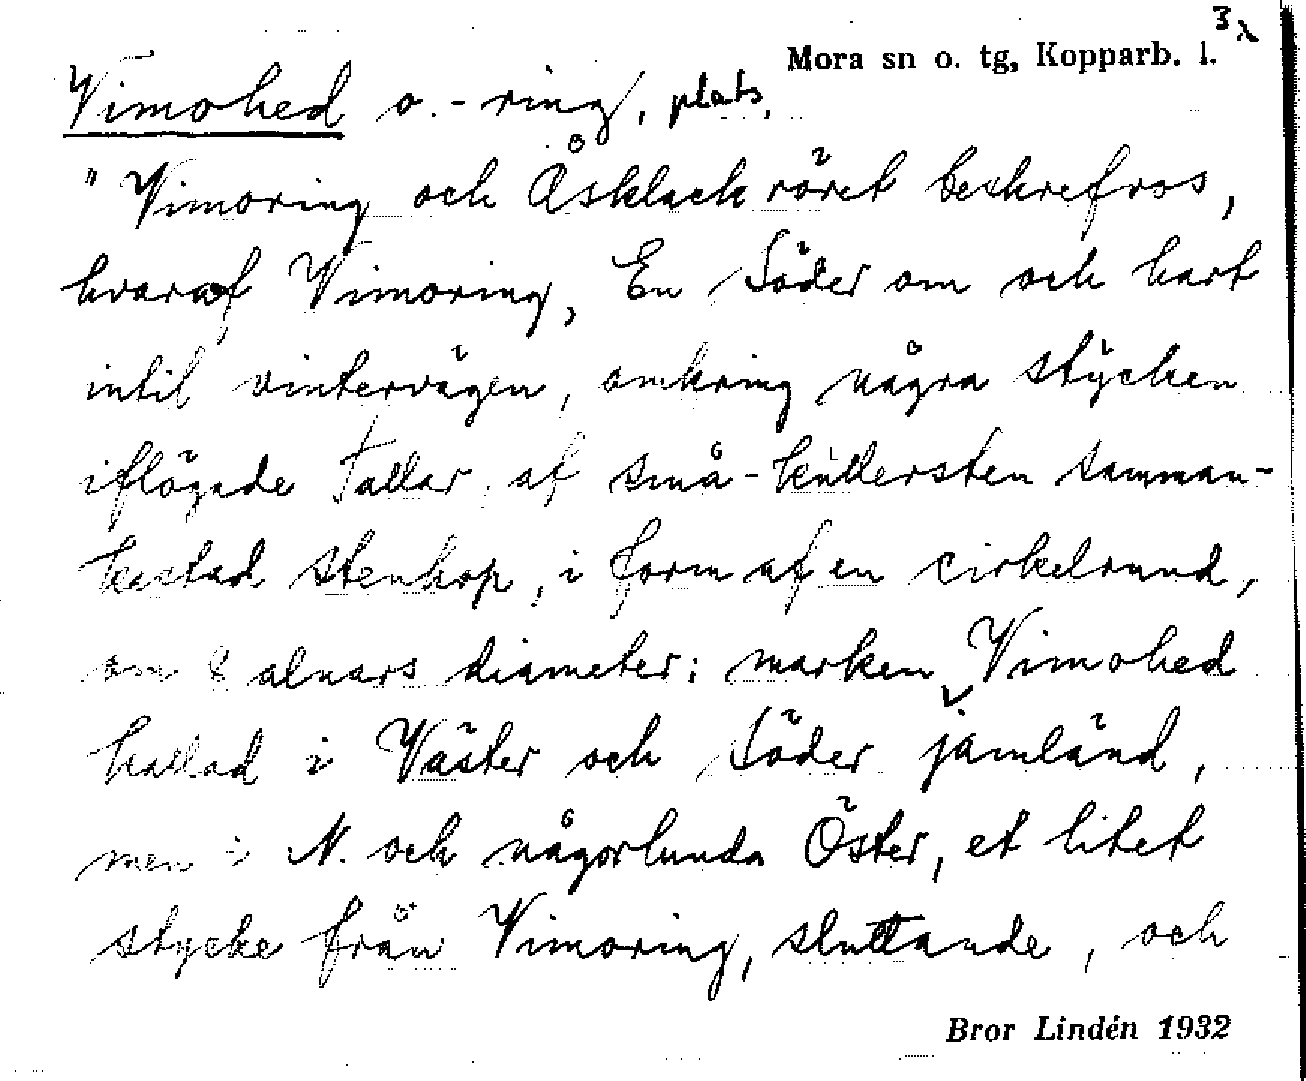 3x
Mora sn o. tg, Kopparb. l.
Vimohed o. -ring, plats.
"Vimoring och Åsklackröret beskrefvos,
hvaraf Vimoring, En Söder om och hart
intil vintervägen, omkring några stycken
iflögade Tallar af små-kullersten samman-
kastad stenhop, i form af en cirkelrund,
om 8 alnars diameter: marken, Vimohed
kallad i Väster och Söder jämländ,
men i N. och någorlunda Öster, et litet
stycke från Vimoring, sluttande, och
Bror Lindén 1932